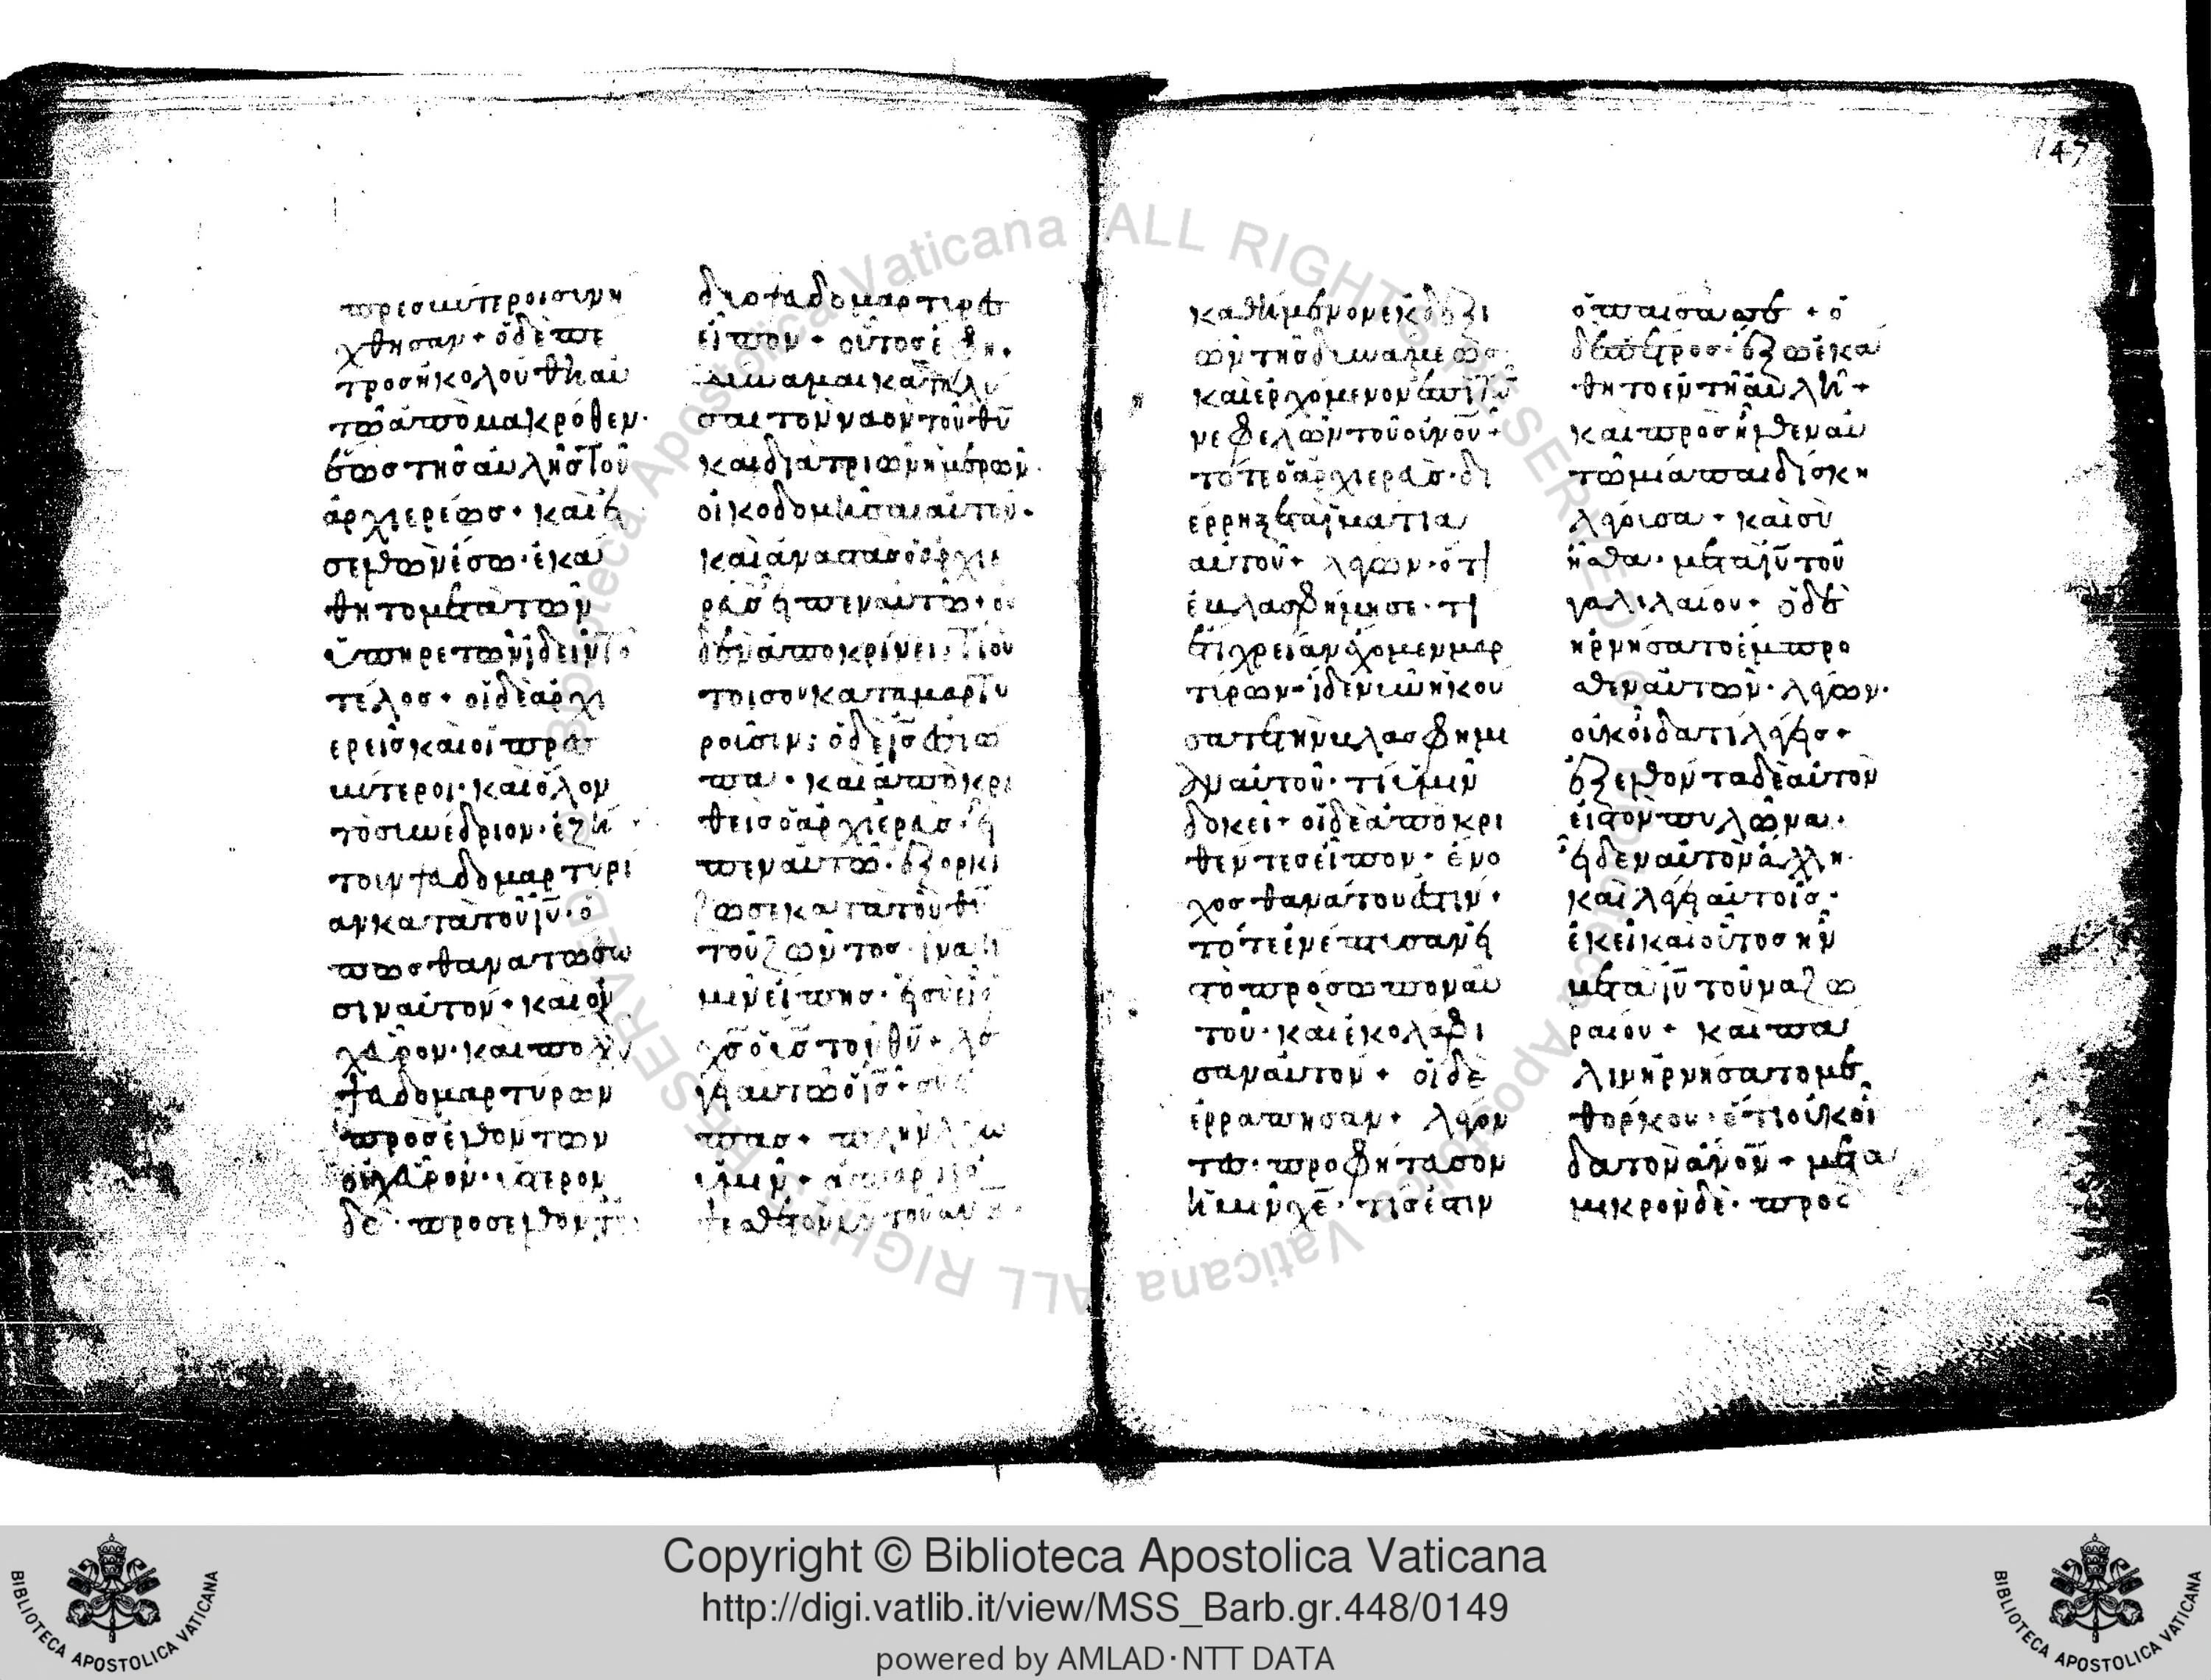 πρεσβύτεροι συνή
χθησαν + ὁ δὲ πέ
τρος ἠκολούθει αὐ
τῶ ἀπὸ μακρόθεν·
ἕως τῆς αὐλῆς τοῦ
ἀρχιερέως + καὶ εἰ
σελθὼν ἔσω· ἐκά
θητο μετὰ τῶν
ὑπηρετῶν ἰδεῖν τὸ
τέλος + οἱ δὲ ἀρχι
ερεῖς καὶ οἱ πρεσ
βύτεροι· καὶ ὅλον
τὸ συνέδριον· ἐζή
τουν ψαδομαρτυρί
αν κατὰ τοῦ ἰῦ· ὅ
πως θανατώσω
σιν αὐτόν + καὶ οὐχ
εὗρον· καὶ πολλῶν
ψαδομαρτύρων
προσελθόντων
οὐχ εὗρον· ὕστερον
δὲ· προσελθόντες
δύο ψαδομάρτυρες
εἶπον + οὗτος ἔφη·
δύναμαι καταλῦ
σαι τὸν ναὸν τοῦ θῦ
καὶ διὰ τριῶν ἡμερῶν·
οἰκοδομῆσαι αὐτόν·
καὶ ἀναστὰς ὁ ἀρχιε
ρεὺς εἶπεν αὐτῶ + οὐ
δὲν ἀποκρίνει· τί οὗ
τοί σου καταμαρτυ
ροῦσιν; ὁ δὲ ἰς ἐσιώ
πα· καὶ ἀποκρι
θεὶς ὁ ἀρχιερεὺς· εἶ
πεν αὐτῶ· ἐξορκί
ζω σε κατὰ τοῦ θῦ
τοῦ ζῶντος· ἵνα ἡ
μῖν εἴπης· εἰ σὺ εἶ ὁ
χς ὁ υἱς τοῦ θῦ + λέ
γει αὐτῶ ὁ ἰς + σὺ εἶ
πας + πλὴν λέγω
ὑμῖν + ἀπ' ἄρτι ὄ
ψεσθε τὸν υν τοῦ ανου
καθήμενον ἐκ δεξι
ῶν τῆς δυνάμεως
καὶ ἐρχόμενον ἐπὶ τῶν
νεφελῶν τοῦ οὐνοῦ +
τότε ὁ ἀρχιερεὺς· δι
έρρηξε τὰ ἱμάτια
αὐτοῦ + λέγων· ὅτι
ἐβλασφήμησε· τί
ἔτι χρείαν ἔχομεν μαρ
τύρων· ἴδε νῦν ἠκού
σατε τὴν βλασφημί
αν αὐτοῦ· τί ὑμῖν
δοκεῖ + οἱ δὲ ἀποκρι
θέντες εἶπον· ἔνο
χος θανάτου ἐστίν·
τότε ἐνέπτυσαν εἰς
τὸ πρόσωπον αὐ
τοῦ· καὶ ἐκολάφι
σαν αὐτόν + οἱ δὲ
ἐρράπησαν + λέγον
τες· προφήτευσον
ἡμῖν χε· τίς ἐστιν
ὁ παίσας σε + ὁ
δὲ πέτρος· ἔξω ἐκά
θητο ἐν τῆ αὐλῆ +
καὶ προσῆλθεν αὐ
τῶ μία παιδίσκη
λέγουσα + καὶ σὺ
ἦσθα· μετὰ ἰῦ τοῦ
γαλιλαίου + ὁ δὲ
ἠρνήσατο ἔμπρο
σθεν αὐτῶν· λέγων·
οὐκ οἶδα τί λέγεις +
ἐξελθόντα δὲ αὐτὸν
εἰς τὸν πυλῶνα·
εἶδεν αὐτὸν ἄλλη·
καὶ λέγει αὐτοῖς·
ἐκεῖ καὶ οὗτος ἦν
μετὰ ἰῦ τοῦ ναζω
ραίου + καὶ πά
λιν ἠρνήσατο με
θ' ὅρκου· ὅτι οὐκ οἶ
δα τὸν ἄνον + μετὰ
μικρὸν δὲ· προς
147
Copyright © Biblioteca Apostolica Vaticana
http://digi.vatlib.it/view/MSS_Barb.gr.448/0149
powered by AMLAD·NTT DATA
BIBLIOTECA APOSTOLICA VATICANA
BIBLIOTECA APOSTOLICA VATICANA